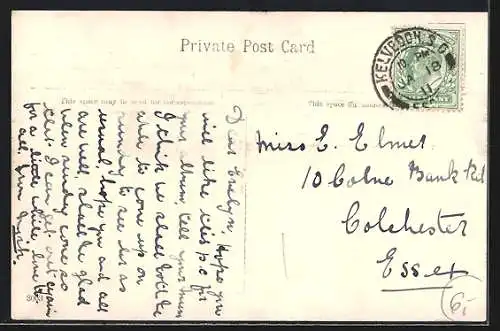 Private Post Card
This space may be used for correspondence
This space for
KELVEDON S.O
JA 18
11
ESSEX
Dear Evelyn, Hope you
will like this p.c for
your album, tell your mum
I think we shall both be
able to come up on
sunday to see her as
usual, hope you and all
are well, shall be glad
when sunday comes so
that I can get out again
for a little while, love to
all, from
Miss E. Elmes
10 Colne Bank Rd
Colchester
Essex
6/-